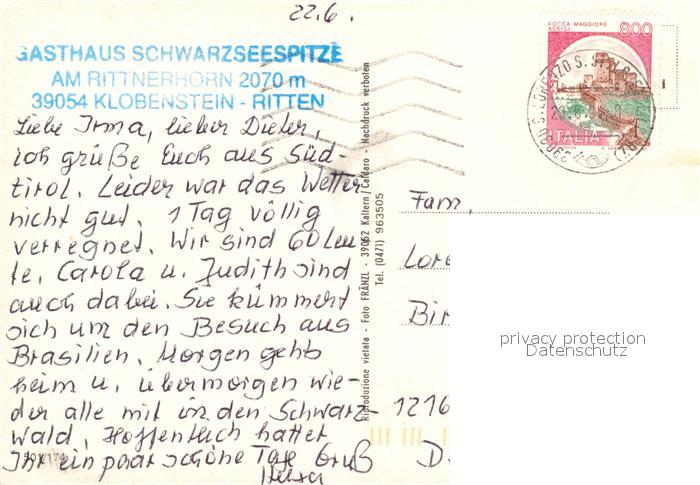 22.6.
GASTHAUS SCHWARZSEESPITZE
AM RITTNERHORN 2070 m
39054 KLOBENSTEIN - RITTEN
Liebe Irma, lieber Dieter,
ich grüße Euch aus Süd-
tirol. Leider war das Wetter
nicht gut. 1 Tag völlig
verregnet. Wir sind 60 Leu-
te, Carola u. Judith sind
auch dabei. Sie kümmert
sich um den Besuch aus
Brasilien. Morgen gehts
heim u. übermorgen wie-
der alle mit in den Schwarz-
wald. Hoffentlich hattet
Ihr ein paar schöne Tage Gruß
Riproduzione vietata - Foto FRÄNZL - 39052 Kaltern/Caldaro - Nachdruck verboten
Tel. (0471) 963505
ROCCA MAGGIORE
ASSISI
800
ITALIA
S. LORENZO S.
Fam.
Lore
Bir
1216
D.
privacy protection
Datenschutz